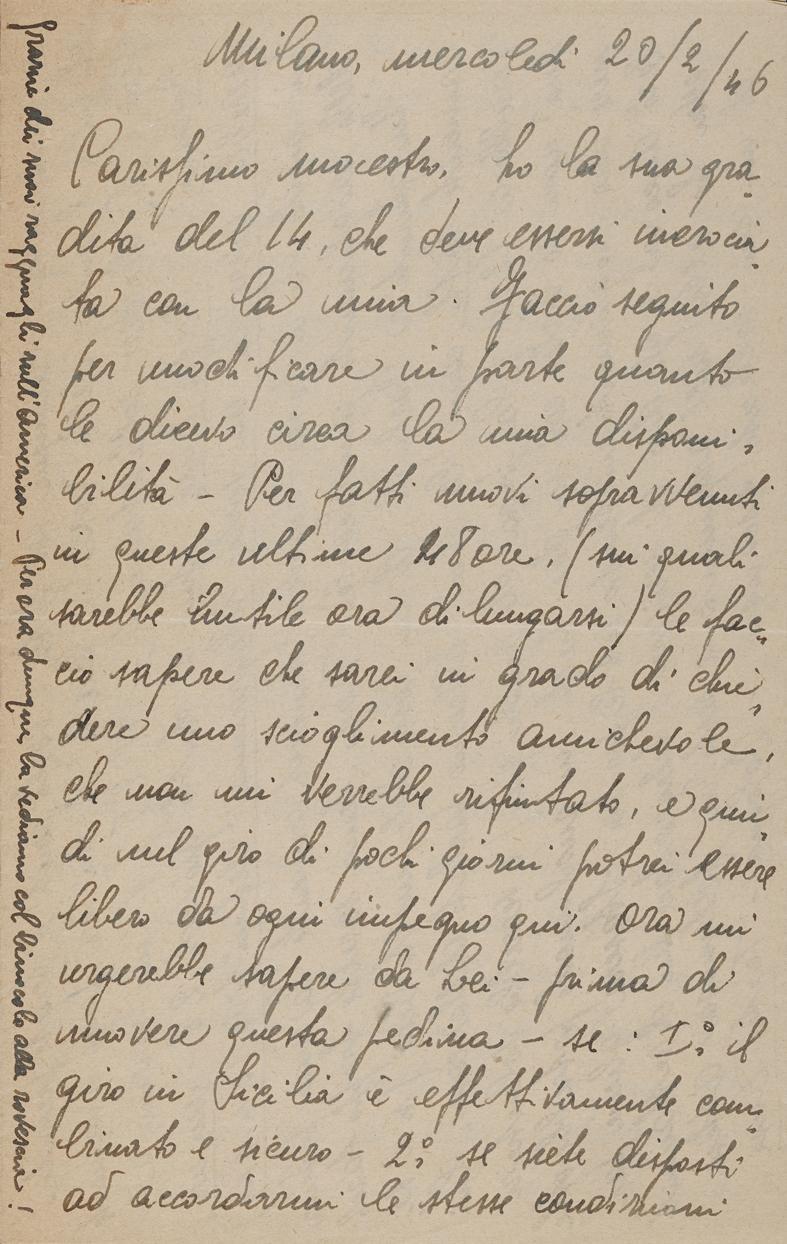 Milano, mercoledì 20/2/46
Carissimo maestro, ho la sua gra-
dita del 14, che deve essersi incrocia-
ta con la mia. Faccio seguito
per modificare in parte quanto
le dicevo circa la mia disponi-
bilità - Per fatti nuovi sopravvenuti
in queste ultime 48 ore, (sui quali
sarebbe inutile ora dilungarsi) le fac-
cio sapere che sarei in grado di chie-
dere uno scioglimento amichevole,
che non mi verrebbe rifiutato, e quin-
di nel giro di pochi giorni potrei essere
libero da ogni impegno qui. Ora mi
urgerebbe sapere da Lei - prima di
muovere questa pedina - se: 1º il
giro in Sicilia è effettivamente com-
binato e sicuro - 2º se siete disposti
ad accordarmi le stesse condizioni
Grazie dei suoi ragguagli sull'America - Per ora dunque la vediamo col binocolo alla rovescia!